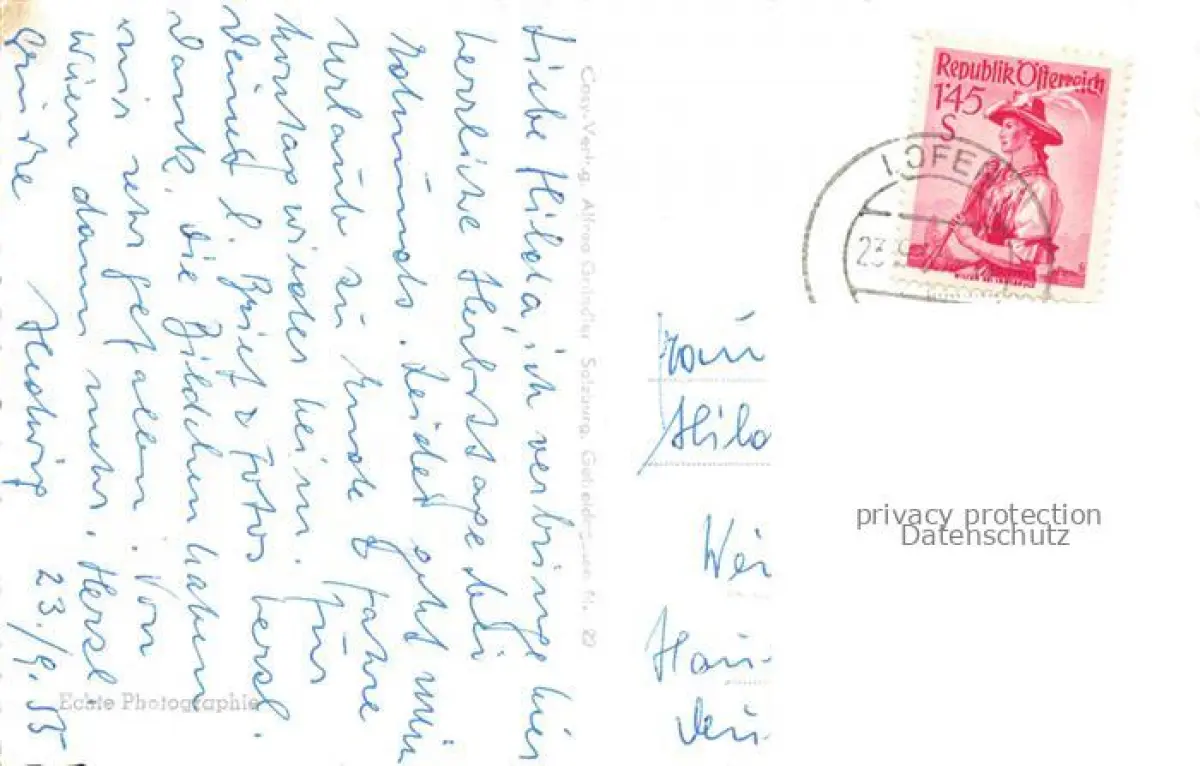 Liebe Hilda, ich verbringe hier
herrliche Herbsttage bei
Leider geht mein
Urlaub zu Ende fahre
wieder heim. Für
Deinen l. Brief & Fotos herzl.
Dank. Die Bildchen haben
mir sehr gefallen. Von
Wien dann mehr. Herzl.
Grüße Hedwig 23./9. 55
Cosy-Verlag, Alfred Gründler, Salzburg, Getreidegasse
Echte Photographie
Republik Österreich
1'45
S
LOFER
23
Frau
Hild
privacy protection
Datenschutz